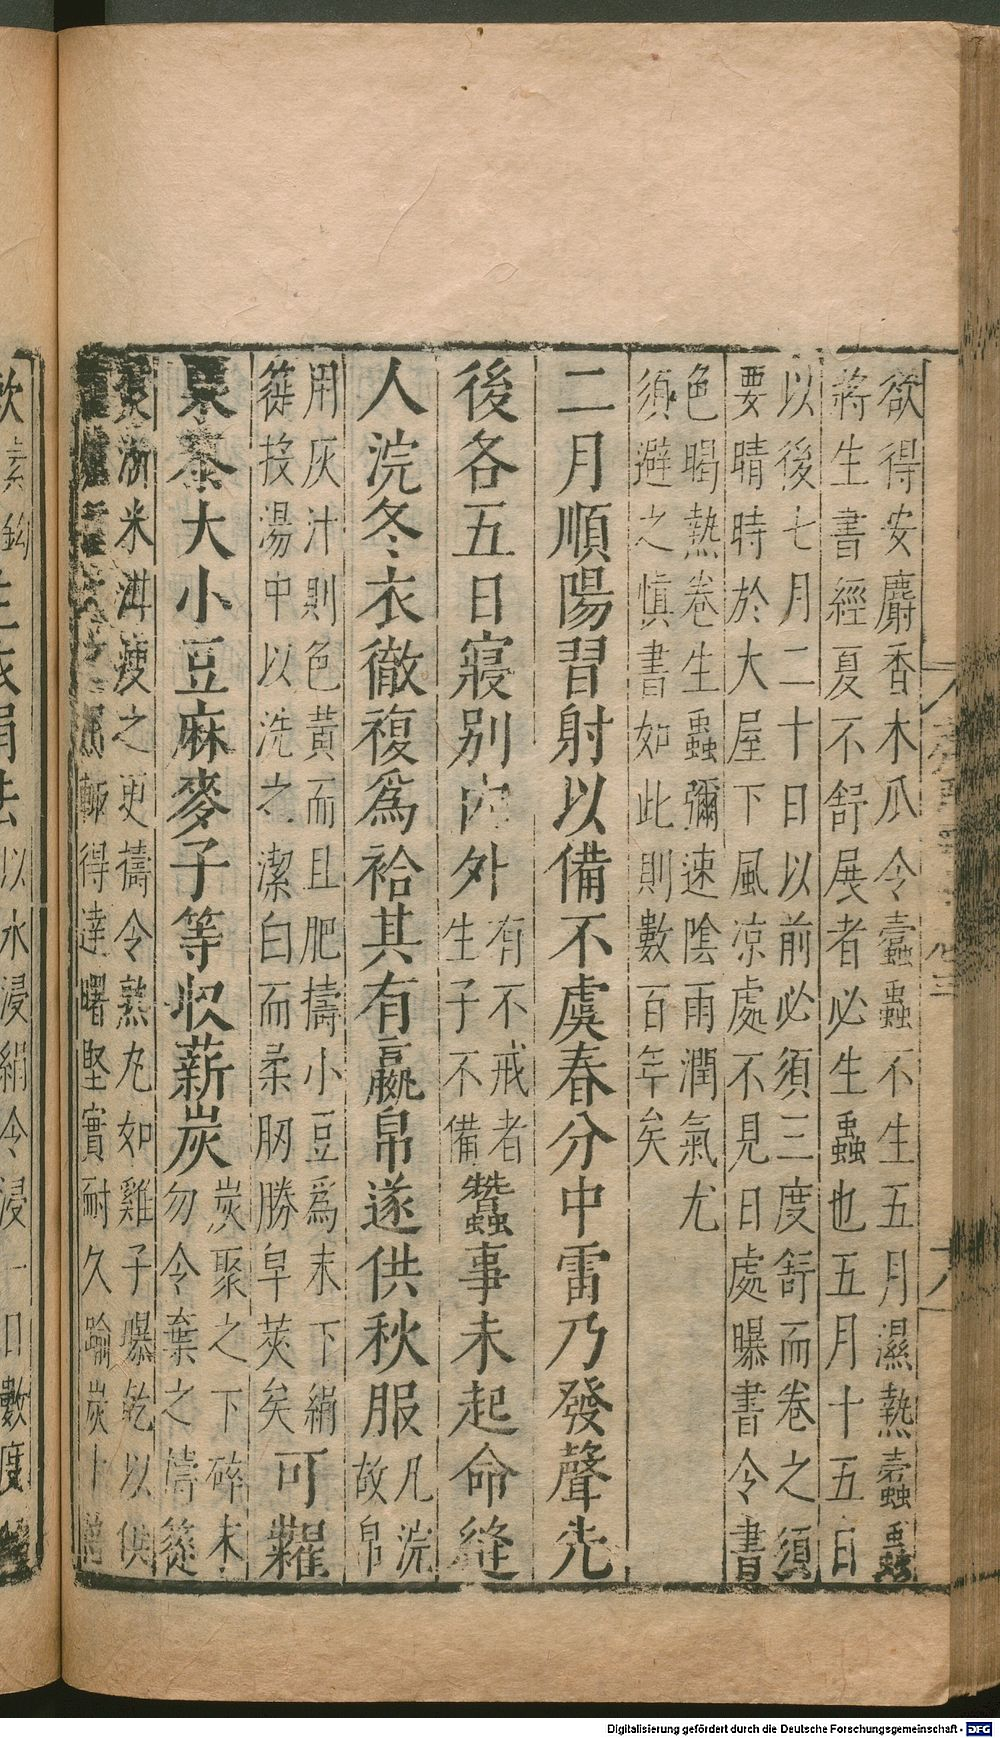 欲得安麝香木瓜令蠹蟲不生五月濕熱蠹蟲
將生書經夏不舒展者必生蟲也五月十五日
以後七月二十日以前必須三度舒而卷之須
要晴時於大屋下風凉處不見日處曝書令書
色暍熱卷生蟲彌速陰雨潤氣尤
須避之慎書如此則數百年矣
二月順陽習射以備不虞春分中雷乃發聲先
後各五日寢別內外有不戒者生子不備蠶事未起命縫
人浣冬衣徹複爲袷其有嬴帛遂供秋服凡浣故帛
用灰汁則色黃而且肥擣小豆爲末下絹
簁投湯中以洗之潔白而柔肕勝皁莢矣可糶
粟黍大小豆麻麥子等收薪炭炭聚之下碎末勿令棄之擣簁
煑淅米泔溲之更擣令熟丸如雞子曝乾以供
輒得達曙堅實耐久踰炭十
生衣絹法以水浸絹令浸一日數度
Digitalisierung gefördert durch die Deutsche Forschungsgemeinschaft - DFG